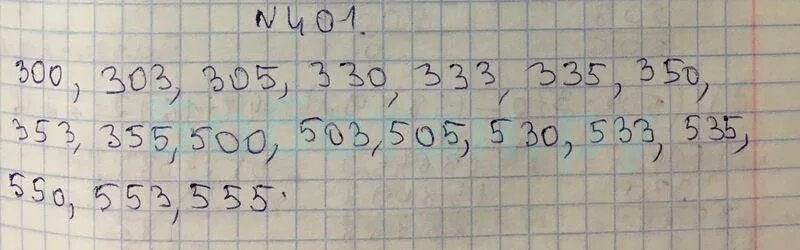 N401.
300, 303, 305, 330, 333, 335, 350,
353, 355, 500, 503, 505, 530, 533, 535,
550, 553, 555.